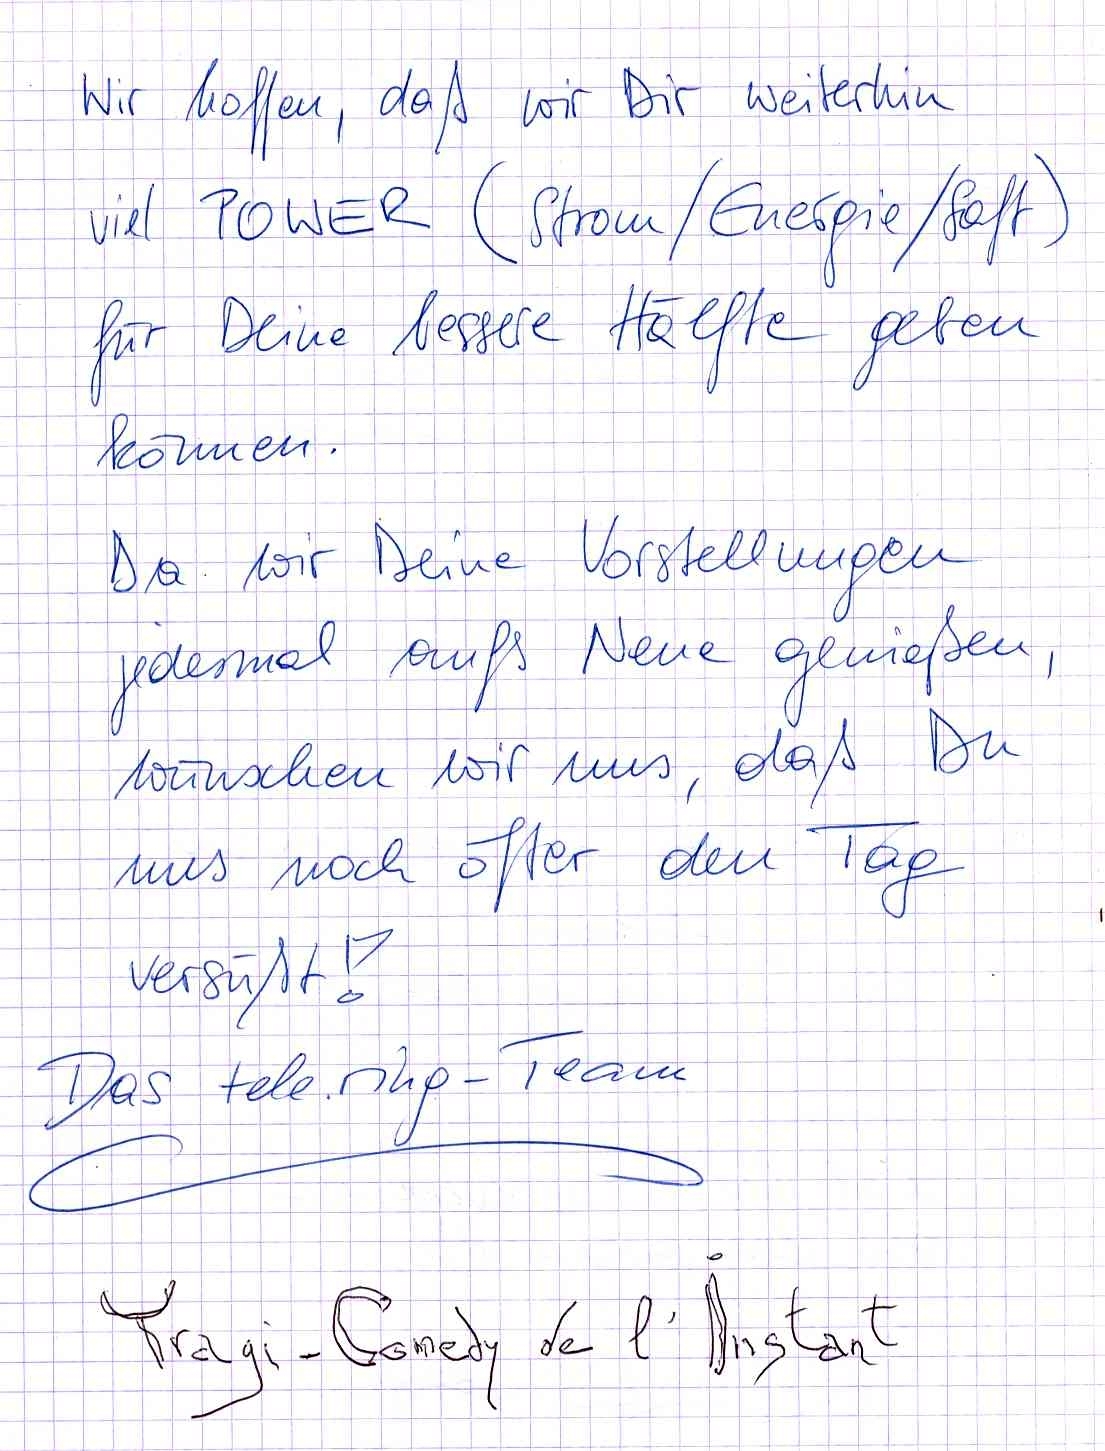 Wir hoffen, daß wir Dir weiterhin
viel POWER (Strom/Energie/Saft)
für Deine bessere Hälfte geben
können.
Da wir Deine Vorstellungen
jedesmal aufs Neue genießen,
wünschen wir uns, daß Du
uns noch öfter den Tag
versüßt!?
Das tele.ring-Team
Tragi-Comedy de l'Instant